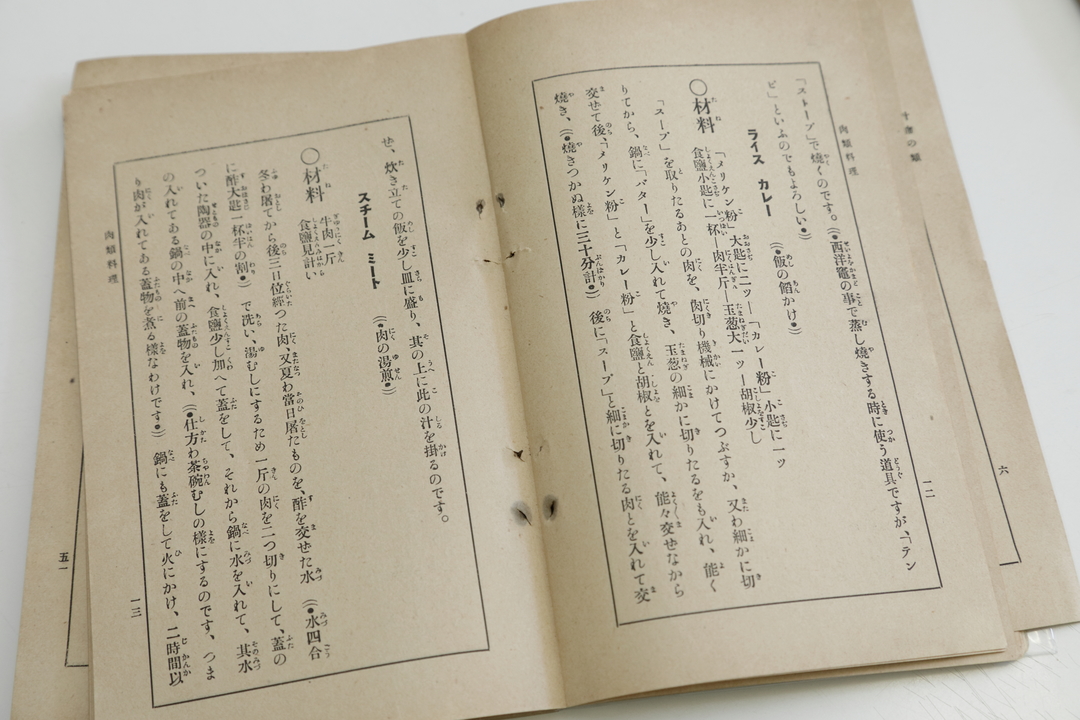 十歳の類
六
肉類料理
「ストーブ」で燒くのです。(●西洋竈の事で蒸し燒きする時に使う道具ですが、「テン
ピ」といふのでもよろしい●)
ライス カレー (●飯の餡かけ●)
○材料 「メリケン粉」大匙にニッ―「カレー粉」小匙に一ッ
食鹽小匙に一杯―肉半斤―玉葱大一ッ―胡椒少し
「スープ」を取りたるあとの肉を、肉切り機械にかけてつぶすか、又わ細かに切
りてから、鍋に「バター」を少し入れて燒き、玉葱の細かに切りたるをも入れ、能く
交せて後、「メリケン粉」と「カレー粉」と食鹽と胡椒とを入れて、能々交せなから
燒き、(●燒きつかぬ樣に三十分計●) 後に「スープ」と細に切りたる肉とを入れて交
一二
せ、炊き立ての飯を少し皿に盛り、其の上に此の汁を掛るのです。
スチーム ミート (●肉の湯煎●)
○材料 牛肉一斤
食鹽見計い
冬わ屠てから後三日位經つた肉、又夏わ當日屠たものを、酢を交せた水 (●水四合
に酢大匙一杯半の割●) で洗い、湯むしにするため一斤の肉を二つ切りにして、蓋の
ついた陶器の中に入れ、食鹽少し加へて蓋をして、それから鍋に水を入れて、其水
の入れてある鍋の中へ前の蓋物を入れ、(●仕方わ茶碗むしの樣にするのです、つま
り肉が入れてある蓋物を煮る樣なわけです●) 鍋にも蓋をして火にかけ、二時間以
肉類料理
一三
五一